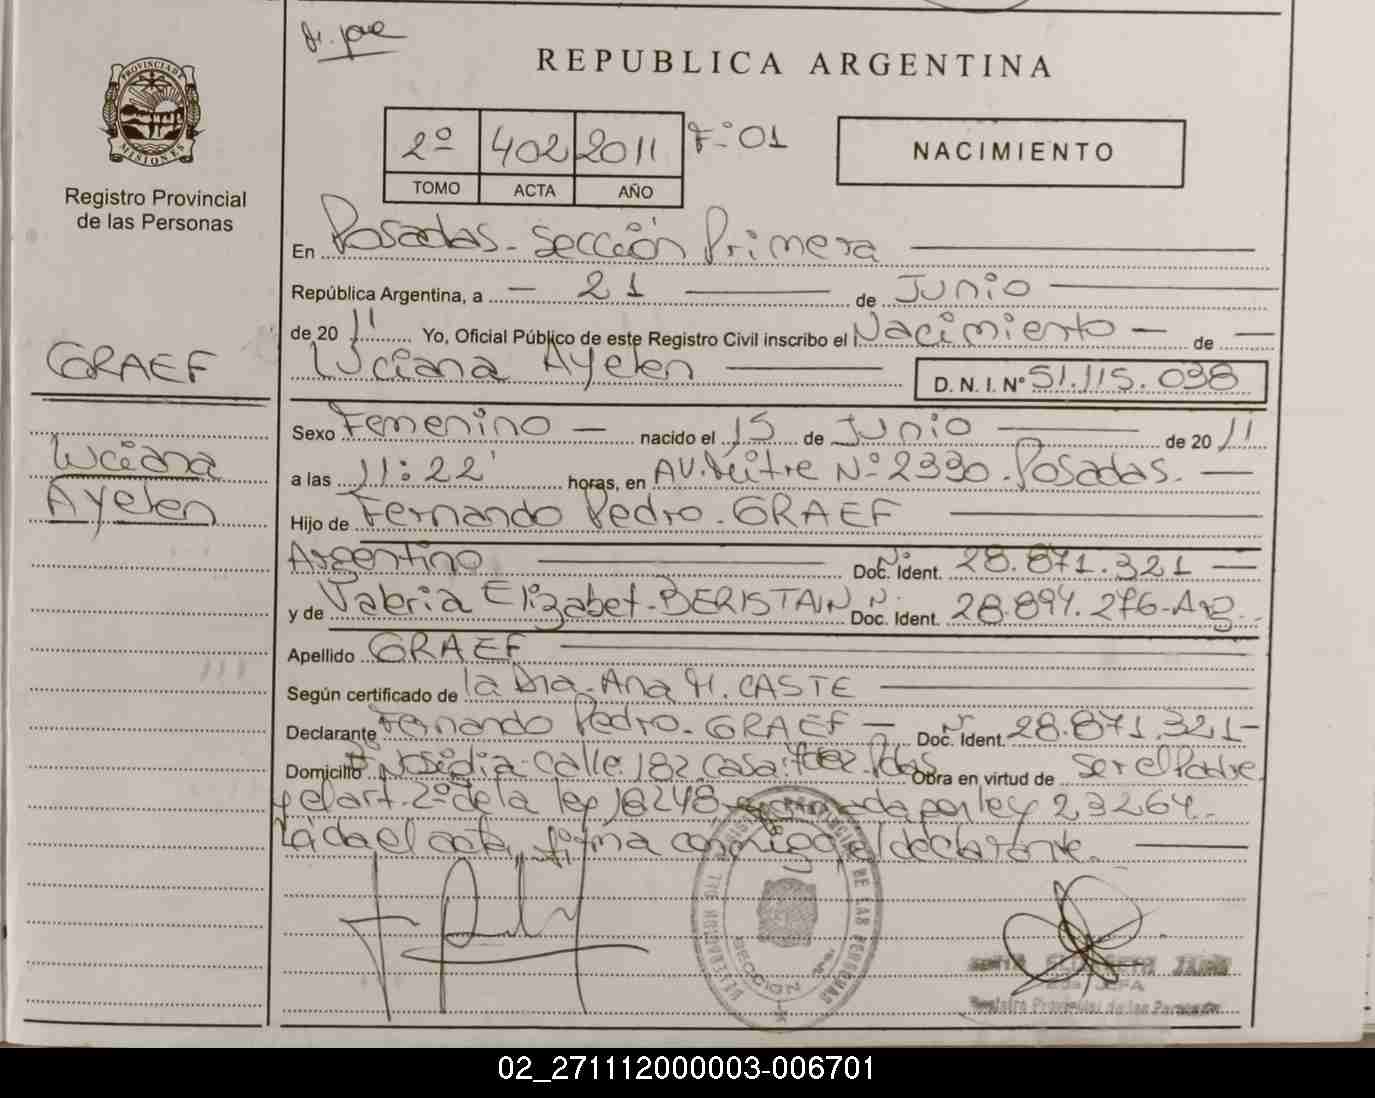 REPUBLICA ARGENTINA
PROVINCIA DE MISIONES
Registro Provincial
de las Personas
2º 402 2011 Fº 01
TOMO ACTA AÑO
NACIMIENTO
En Posadas - Sección Primera
República Argentina, a 21 de Junio
de 2011 Yo, Oficial Público de este Registro Civil inscribo el Nacimiento de
Luciana Ayelen D. N. I. Nº 51.115.038
GRAEF
Luciana
Ayelen
Sexo Femenino nacido el 15 de Junio de 2011
a las 11:22' horas, en AV. Mitre Nº 2330. Posadas.
Hijo de Fernando Pedro GRAEF
Argentino Doc. Ident. Nº 28.871.321
y de Valeria Elizabet BERISTAIN Doc. Ident. Nº 28.894.276 - Arg.
Apellido GRAEF
Según certificado de la Dra. Ana M. CASTE
Declarante Fernando Pedro GRAEF Doc. Ident. Nº 28.871.321
Domicilio calle 182 casa Pdas Obra en virtud de ser el Padre
y el art. 2º de la ley 18248 por ley 23264.
Leída el acta, firma conmigo el declarante.
SECCION 1ª
JEFA
Registro Provincial de las Personas
02_271112000003-006701